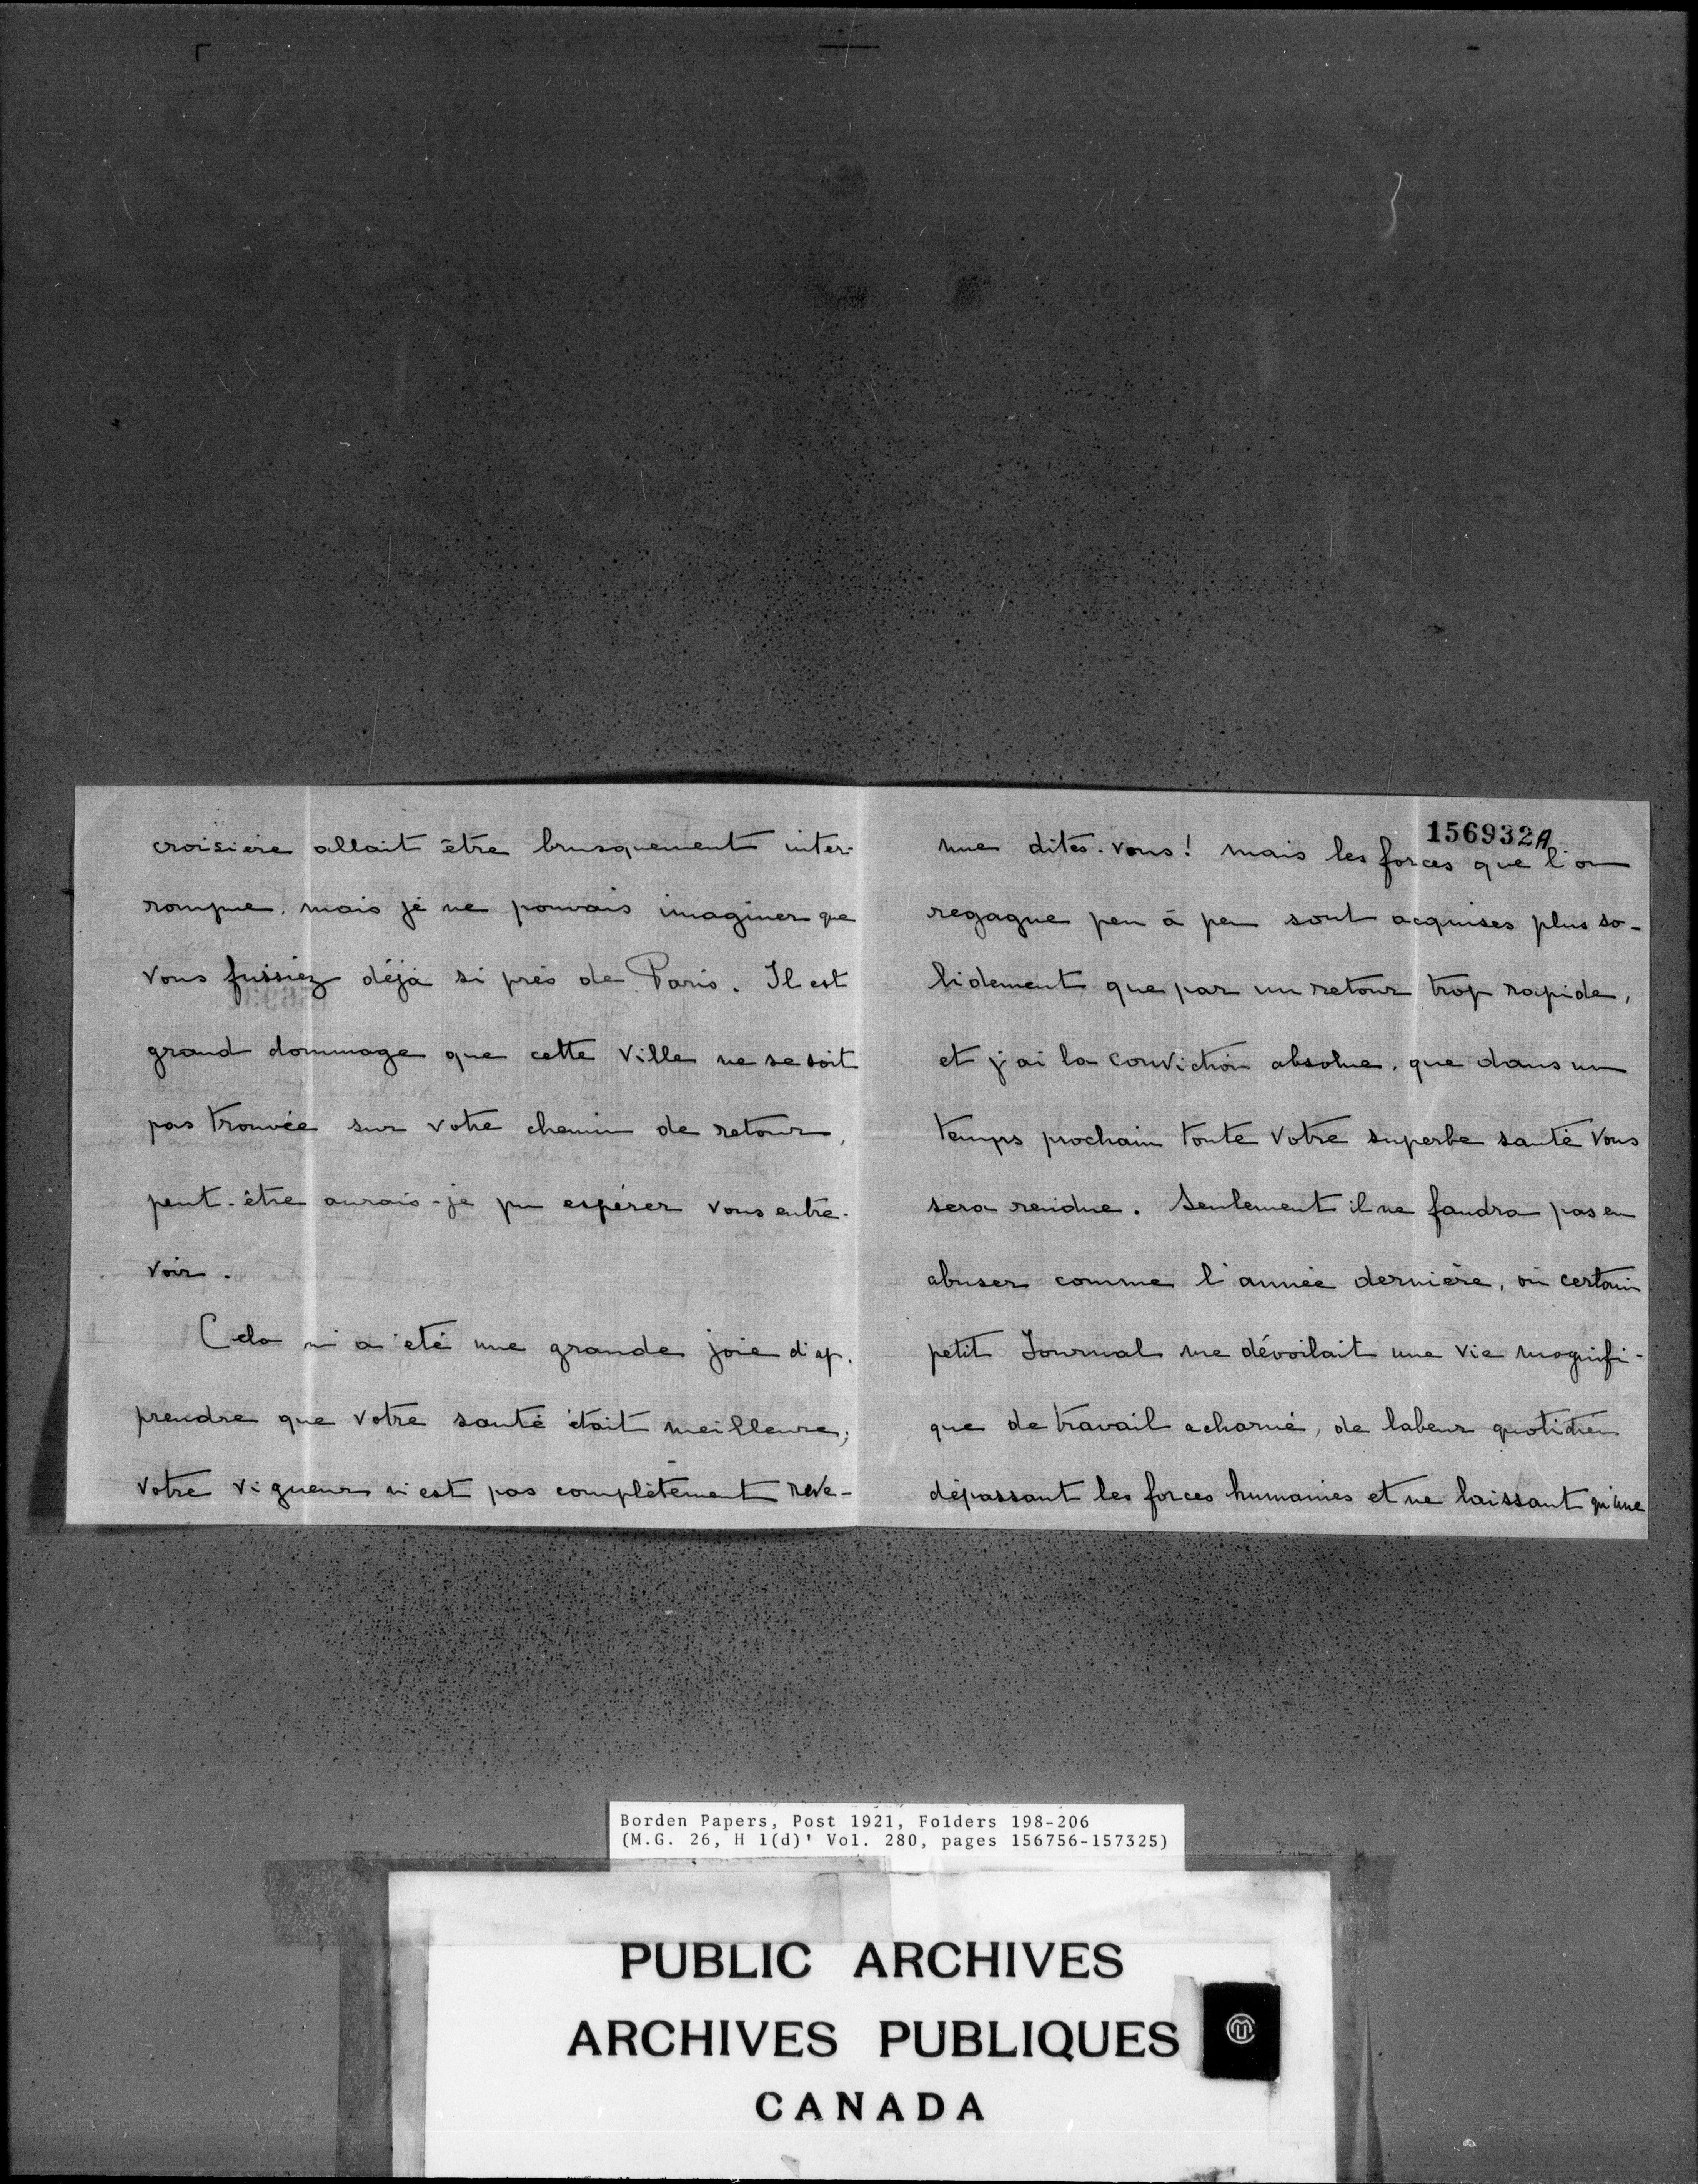 croisière allait être brusquement inter-
rompue, mais je ne pouvais imaginer que
vous fussiez déjà si près de Paris. Il est
grand dommage que cette ville ne se soit
pas trouvée sur votre chemin de retour,
peut-être aurais-je pu espérer vous entre-
voir.
Cela m'a été une grande joie d'ap-
prendre que votre santé était meilleure;
votre vigueur n'est pas complètement reve-
156932A
nue dites-vous! mais les forces que l'on
regagne peu à peu sont acquises plus so-
lidement que par un retour trop rapide,
et j'ai la conviction absolue, que dans un
temps prochain toute votre superbe santé vous
sera rendue. Seulement il ne faudra pas en
abuser comme l'année dernière, où certain
petit Journal me dévoilait une vie magnifi-
que de travail acharné, de labeur quotidien
dépassant les forces humaines et ne laissant qu'une
Borden Papers, Post 1921, Folders 198-206
(M.G. 26, H 1(d)' Vol. 280, pages 156756-157325)
PUBLIC ARCHIVES
ARCHIVES PUBLIQUES
CANADA